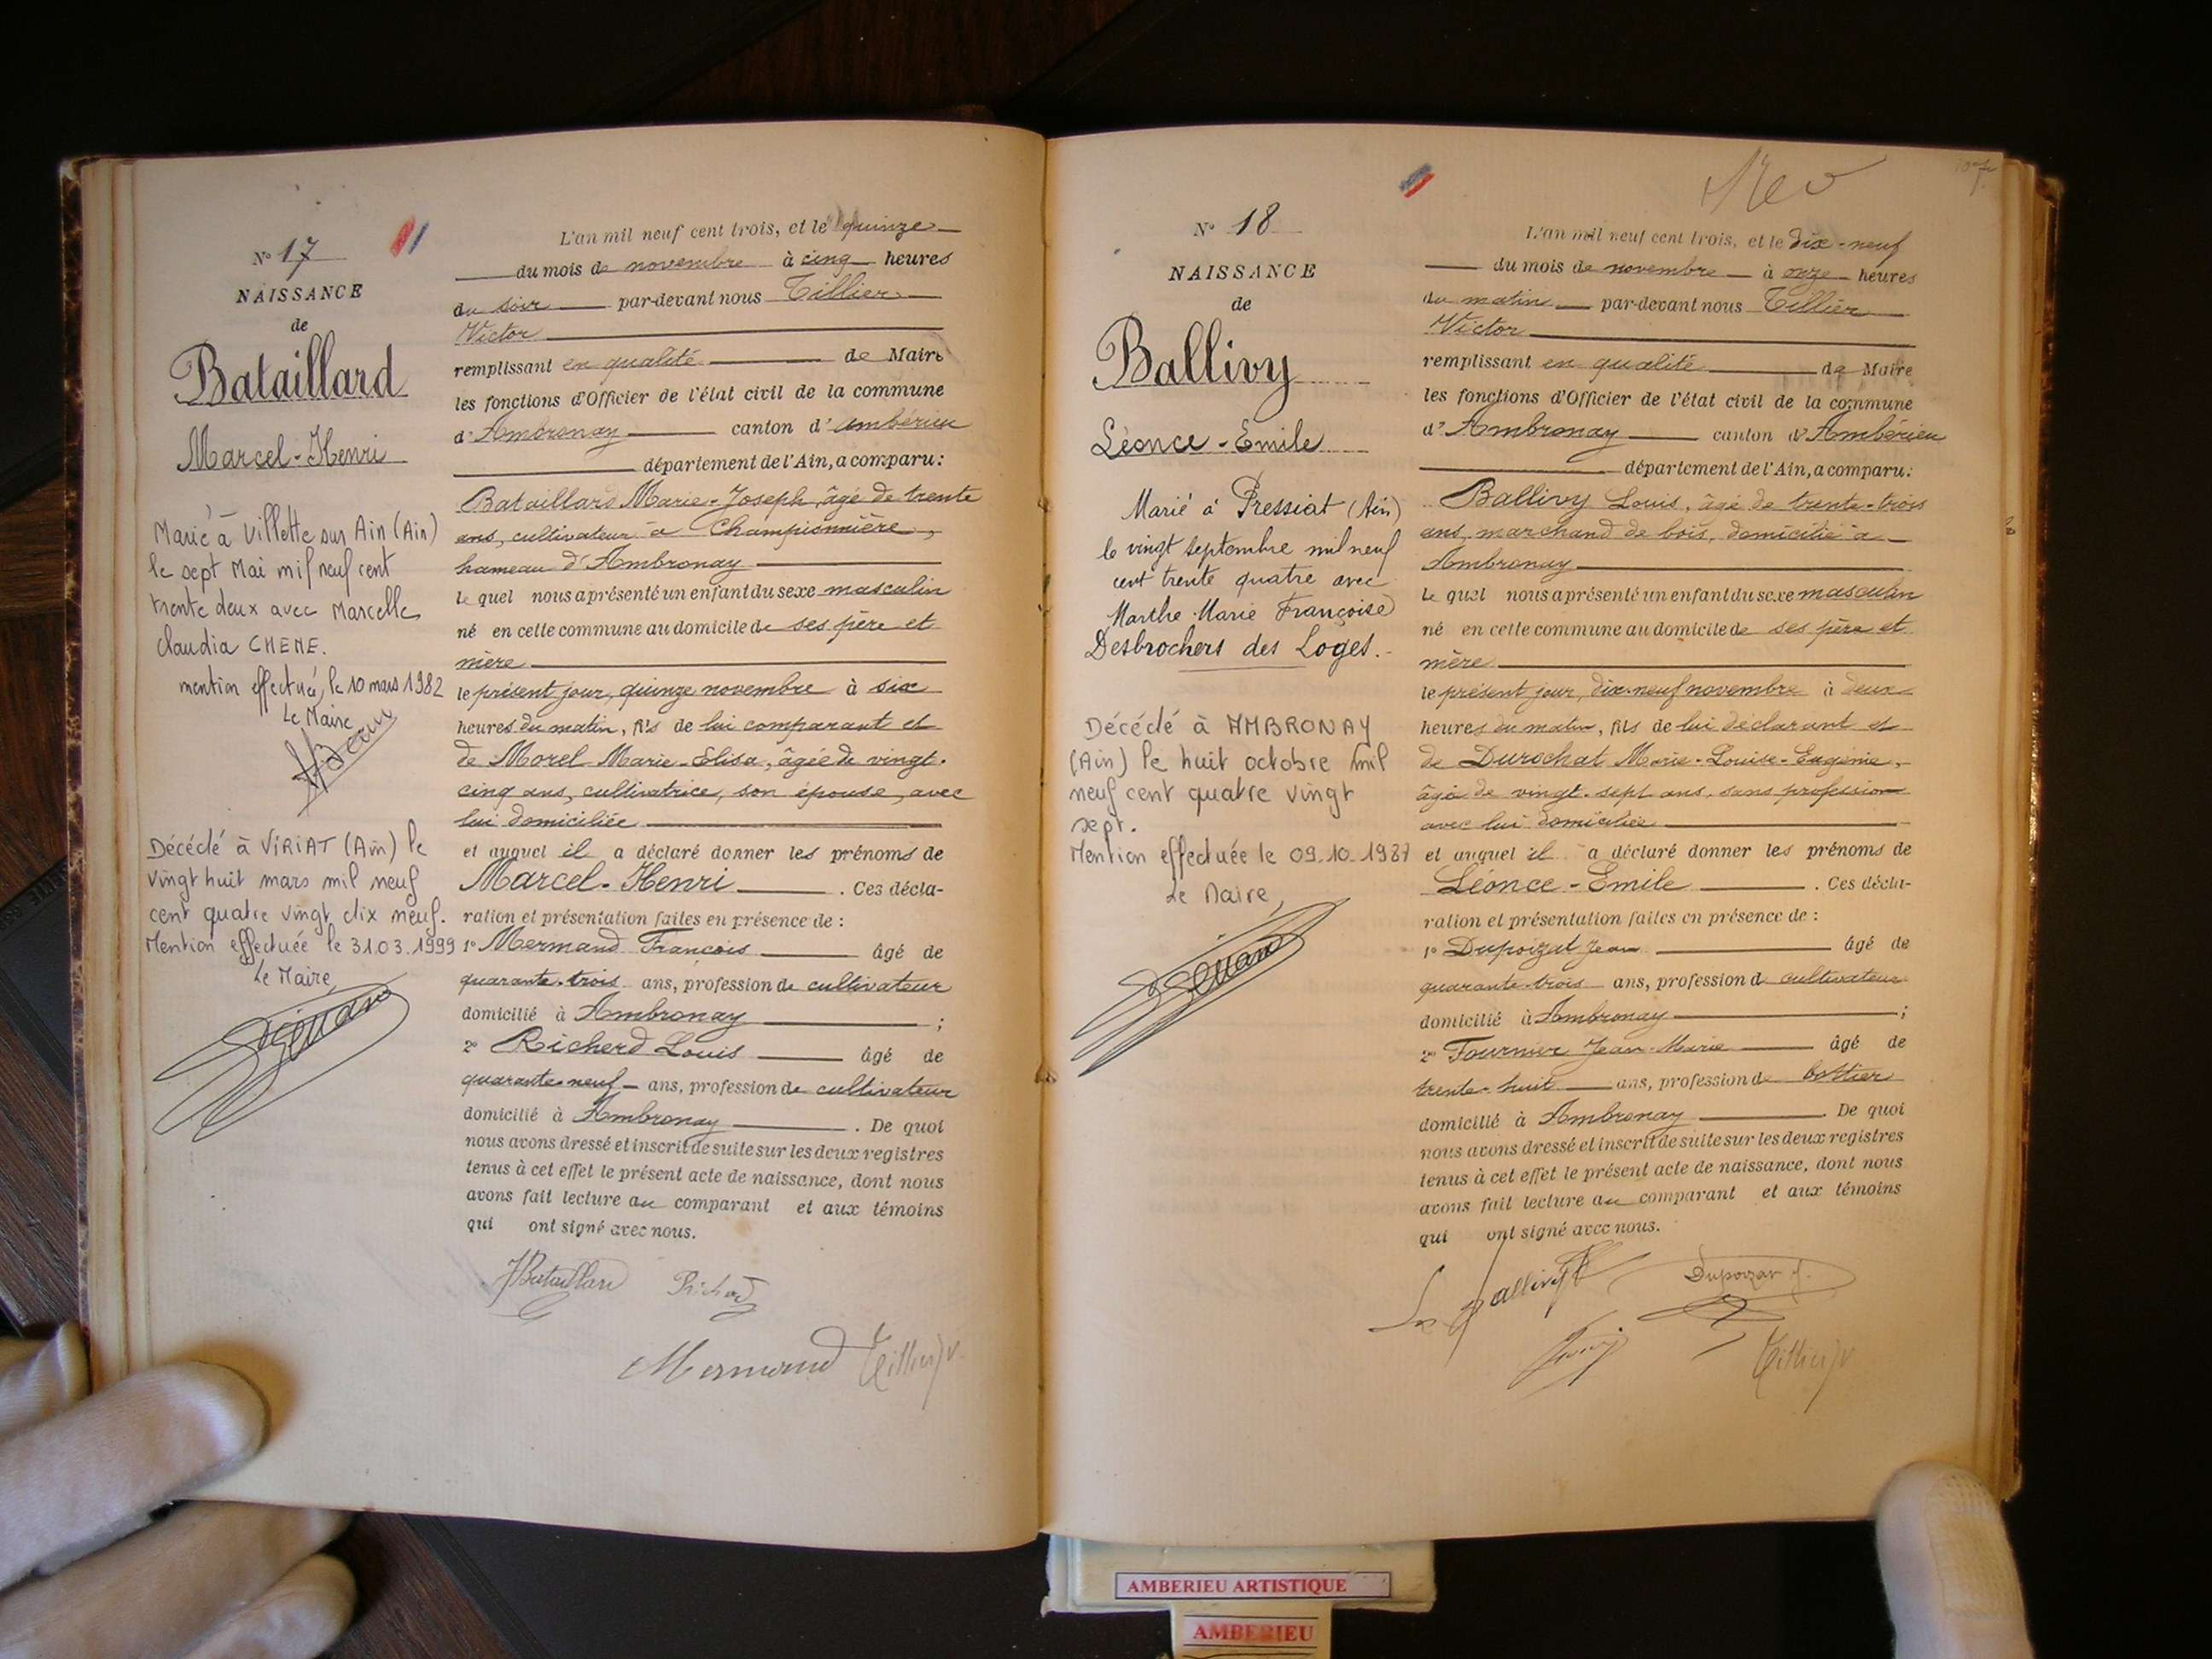 N° 17
NAISSANCE
de
Bataillard
Marcel-Henri
Marié à Villette sur Ain (Ain)
le sept Mai mil neuf cent
trente deux avec Marcelle
Claudia CHENE.
mention effectuée, le 10 mars 1982
Le Maire
Décédé à VIRIAT (Ain) le
vingt huit mars mil neuf
cent quatre vingt dix neuf.
Mention effectuée le 31.03.1999
Le Maire
L'an mil neuf cent trois, et le quinze
du mois de novembre à cinq heures
du soir par-devant nous Tillier
Victor
remplissant en qualité de Maire
les fonctions d'Officier de l'état civil de la commune
d'Ambronay canton d'Ambérieu
département de l'Ain, a comparu:
Bataillard Marie-Joseph, âgé de trente
ans, cultivateur à Championnière,
hameau d'Ambronay
le quel nous a présenté un enfant du sexe masculin
né en cette commune au domicile de ses père et
mère
le présent jour, quinze novembre à six
heures du matin, fils de lui comparant et
de Morel Marie-Elisa, âgée de vingt-
cinq ans, cultivatrice, son épouse, avec
lui domiciliée
et auquel il a déclaré donner les prénoms de
Marcel-Henri . Ces décla-
ration et présentation faites en présence de :
1° Mermand François âgé de
quarante-trois ans, profession de cultivateur
domicilié à Ambronay ;
2° Richerd Louis âgé de
quarante-neuf ans, profession de cultivateur
domicilié à Ambronay . De quoi
nous avons dressé et inscrit de suite sur les deux registres
tenus à cet effet le présent acte de naissance, dont nous
avons fait lecture au comparant et aux témoins
qui ont signé avec nous.
JBataillard Richerd
Mermand Tillier V.
N° 18
NAISSANCE
de
Ballivy
Léonce-Emile
Marié à Pressiat (Ain)
le vingt septembre mil neuf
cent trente quatre avec
Marthe Marie Françoise
Desbrochers des Loges.
Décédé à AMBRONAY
(Ain) le huit octobre mil
neuf cent quatre vingt
sept.
Mention effectuée le 09.10.1987
Le Maire,
L'an mil neuf cent trois, et le dix-neuf
du mois de novembre à onze heures
du matin par-devant nous Tillier
Victor
remplissant en qualité de Maire
les fonctions d'Officier de l'état civil de la commune
d'Ambronay canton d'Ambérieu
département de l'Ain, a comparu:
Ballivy Louis, âgé de trente-trois
ans, marchand de bois, domicilié à
Ambronay
le quel nous a présenté un enfant du sexe masculin
né en cette commune au domicile de ses père et
mère
le présent jour, dix-neuf novembre à deux
heures du matin, fils de lui déclarant et
de Durochat Marie-Louise-Eugénie,
âgée de vingt-sept ans, sans profession
avec lui domiciliée
et auquel il a déclaré donner les prénoms de
Léonce-Emile . Ces décla-
ration et présentation faites en présence de :
1° Dupoizat Jean âgé de
quarante-trois ans, profession d cultivateur
domicilié à Ambronay ;
2° Fournier Jean-Marie âgé de
trente-huit ans, profession de bottier
domicilié à Ambronay . De quoi
nous avons dressé et inscrit de suite sur les deux registres
tenus à cet effet le présent acte de naissance, dont nous
avons fait lecture au comparant et aux témoins
qui ont signé avec nous.
Ls Ballivy Dupoizat J.
Tillier V
AMBERIEU ARTISTIQUE
AMBERIEU